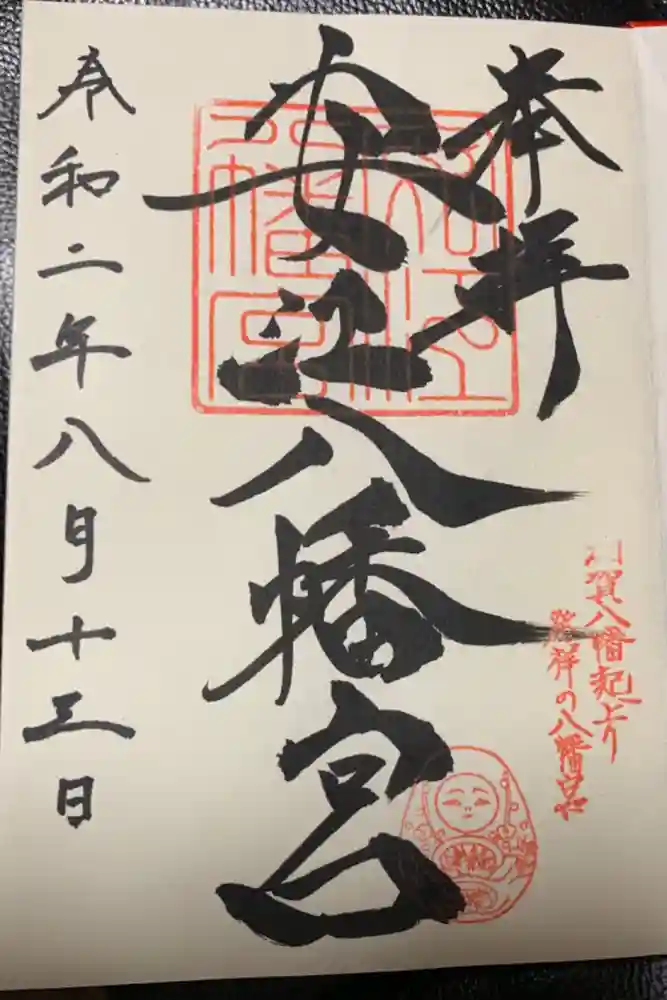 奉拝
加賀八幡起上り
発祥の八幡宮
安江八幡宮
安江
八幡宮
令和二年八月十三日